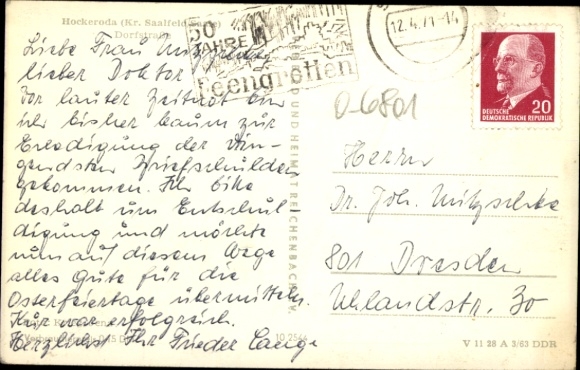 Hockeroda (Kr. Saalfeld
Dorfstraße
Liebe Frau
lieber Doktor
Vor lauter Zeitnot bin
ich bisher kaum zur
Erledigung der drin-
gendsten Briefschulden
gekommen. Ich bitte
deshalb um Entschul-
digung und möchte
nun auf diesem Wege
alles Gute für die
Osterfeiertage übermitteln.
Kur war erfolgreich.
Herzlichst Ihr Frieder Lange
50
JAHRE
Feengrotten
12.4.71-14
20
DEUTSCHE
DEMOKRATISCHE REPUBLIK
0-6801
BILD UND HEIMAT REICHENBACH I. V.
Herrn
Dr. Joh. Nitzschke
801 Dresden
Uhlandstr. 30
V 11 28 A 3/63 DDR